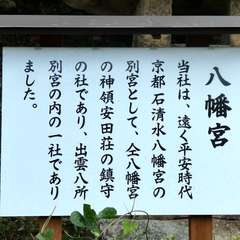 八幡宮
当社は、遠く平安時代
京都石清水八幡宮の
別宮として、仝八幡宮
の神領安田荘の鎮守
の社であり、出雲八所
別宮の内の一社であり
ました。